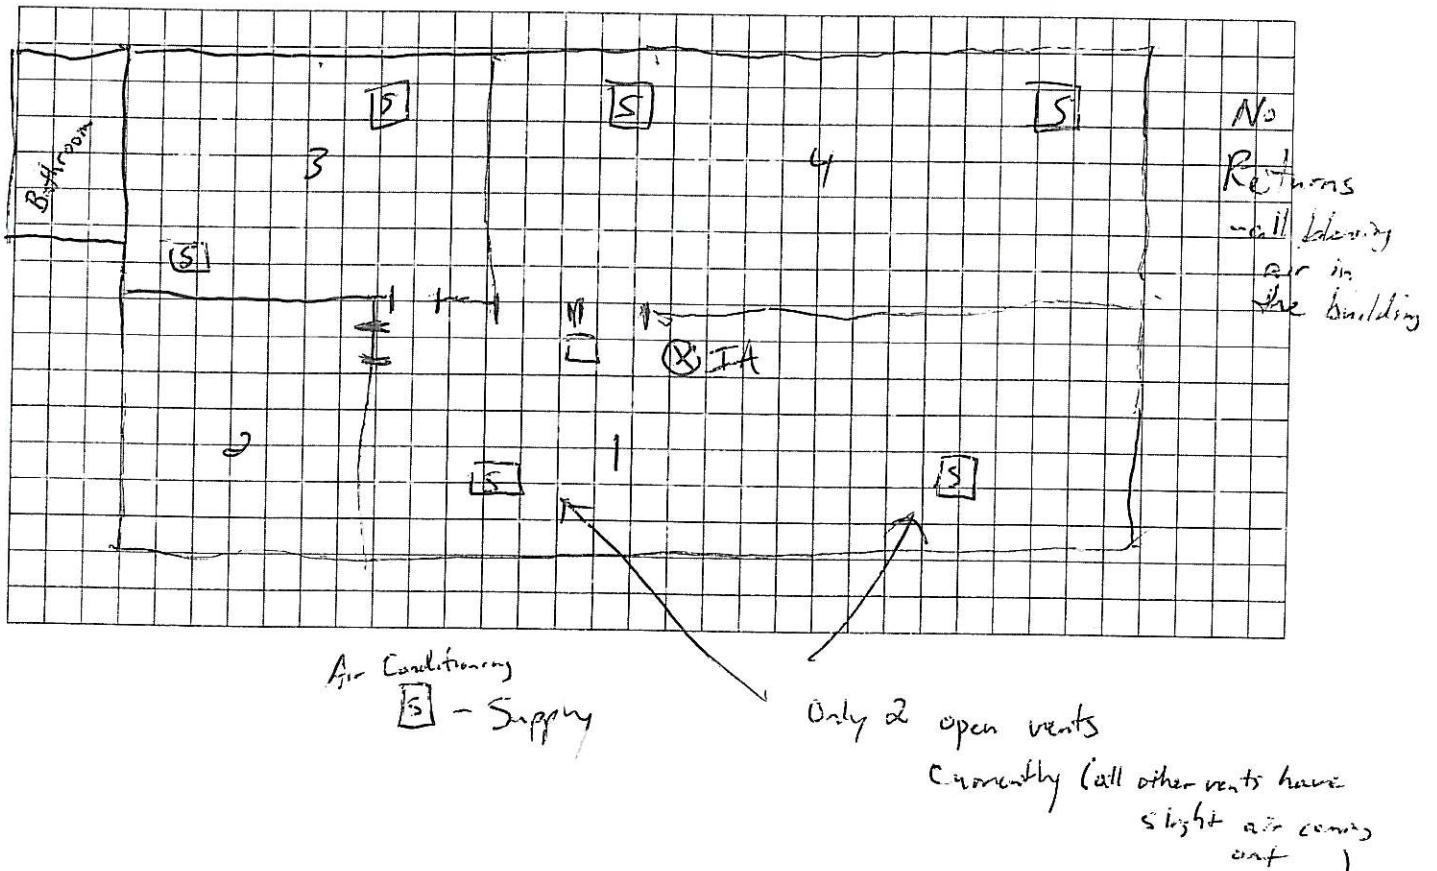 S
S
S
No
Returns
3
4
Bathroom
all blowing
S
air in
the building
IA
2
1
S
S
Air Conditioning
S - Supply
Only 2 open vents
Currently (all other vents have
slight air coming
out )